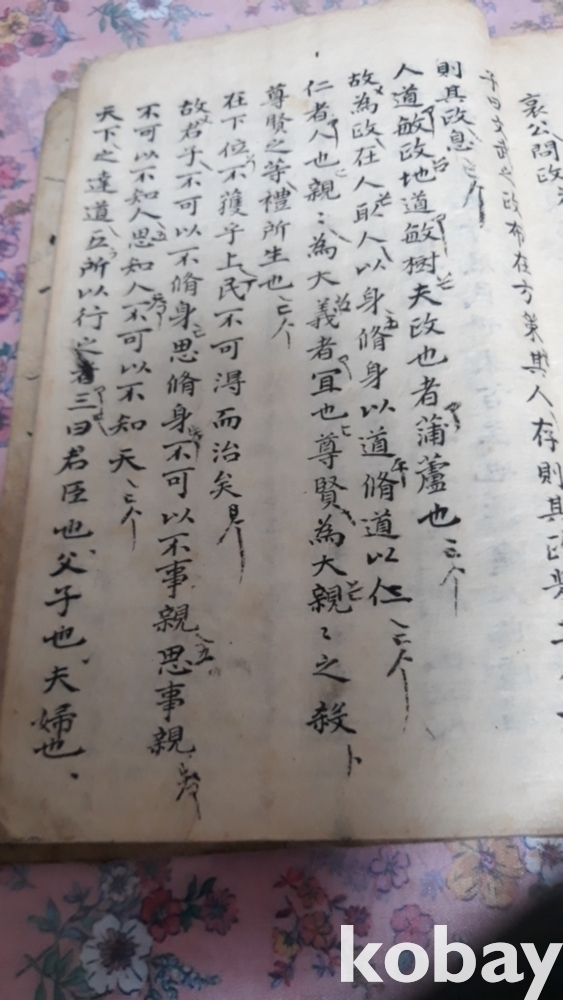 哀公問政
子曰文武之政布在方策其人存則其政
則其政息
人道敏政地道敏樹夫政也者蒲蘆也
故為政在人取人以身脩身以道脩道以仁
仁者人也親〻為大義者宜也尊賢為大親〻之殺
尊賢之等禮所生也
在下位不獲乎上民不可得而治矣
故君子不可以不脩身思脩身不可以不事親思事親
不可以不知人思知人不可以不知天
天下之達道五所以行之者三曰君臣也父子也夫婦也
kobay